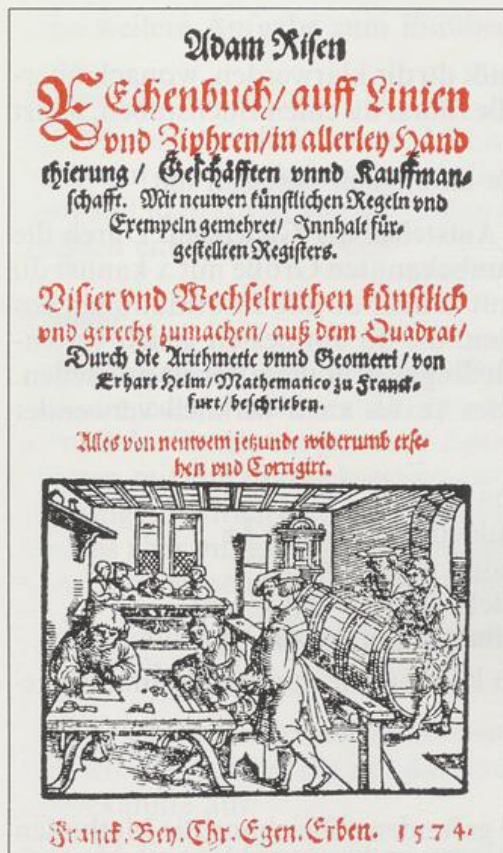 Adam Risen
REchenbuch/ auff Linien
vnd Ziphren/ in allerley Hand
thierung / Geschäfften vnnd Kauffman=
schafft. Mit neuwen künstlichen Regeln vnd
Exempeln gemehret/ Innhalt für=
gestellten Registers.
Visier vnd Wechselruthen künstlich
vnd gerecht zumachen/ auß dem Quadrat/
Durch die Arithmetic vnnd Geometri/ von
Erhart Helm/ Mathematico zu Franck=
furt/ beschrieben.
Alles von neuwem jetzunde widerumb erse=
hen vnd Corrigirt.
Franck. Bey. Chr. Egen. Erben. 1574.